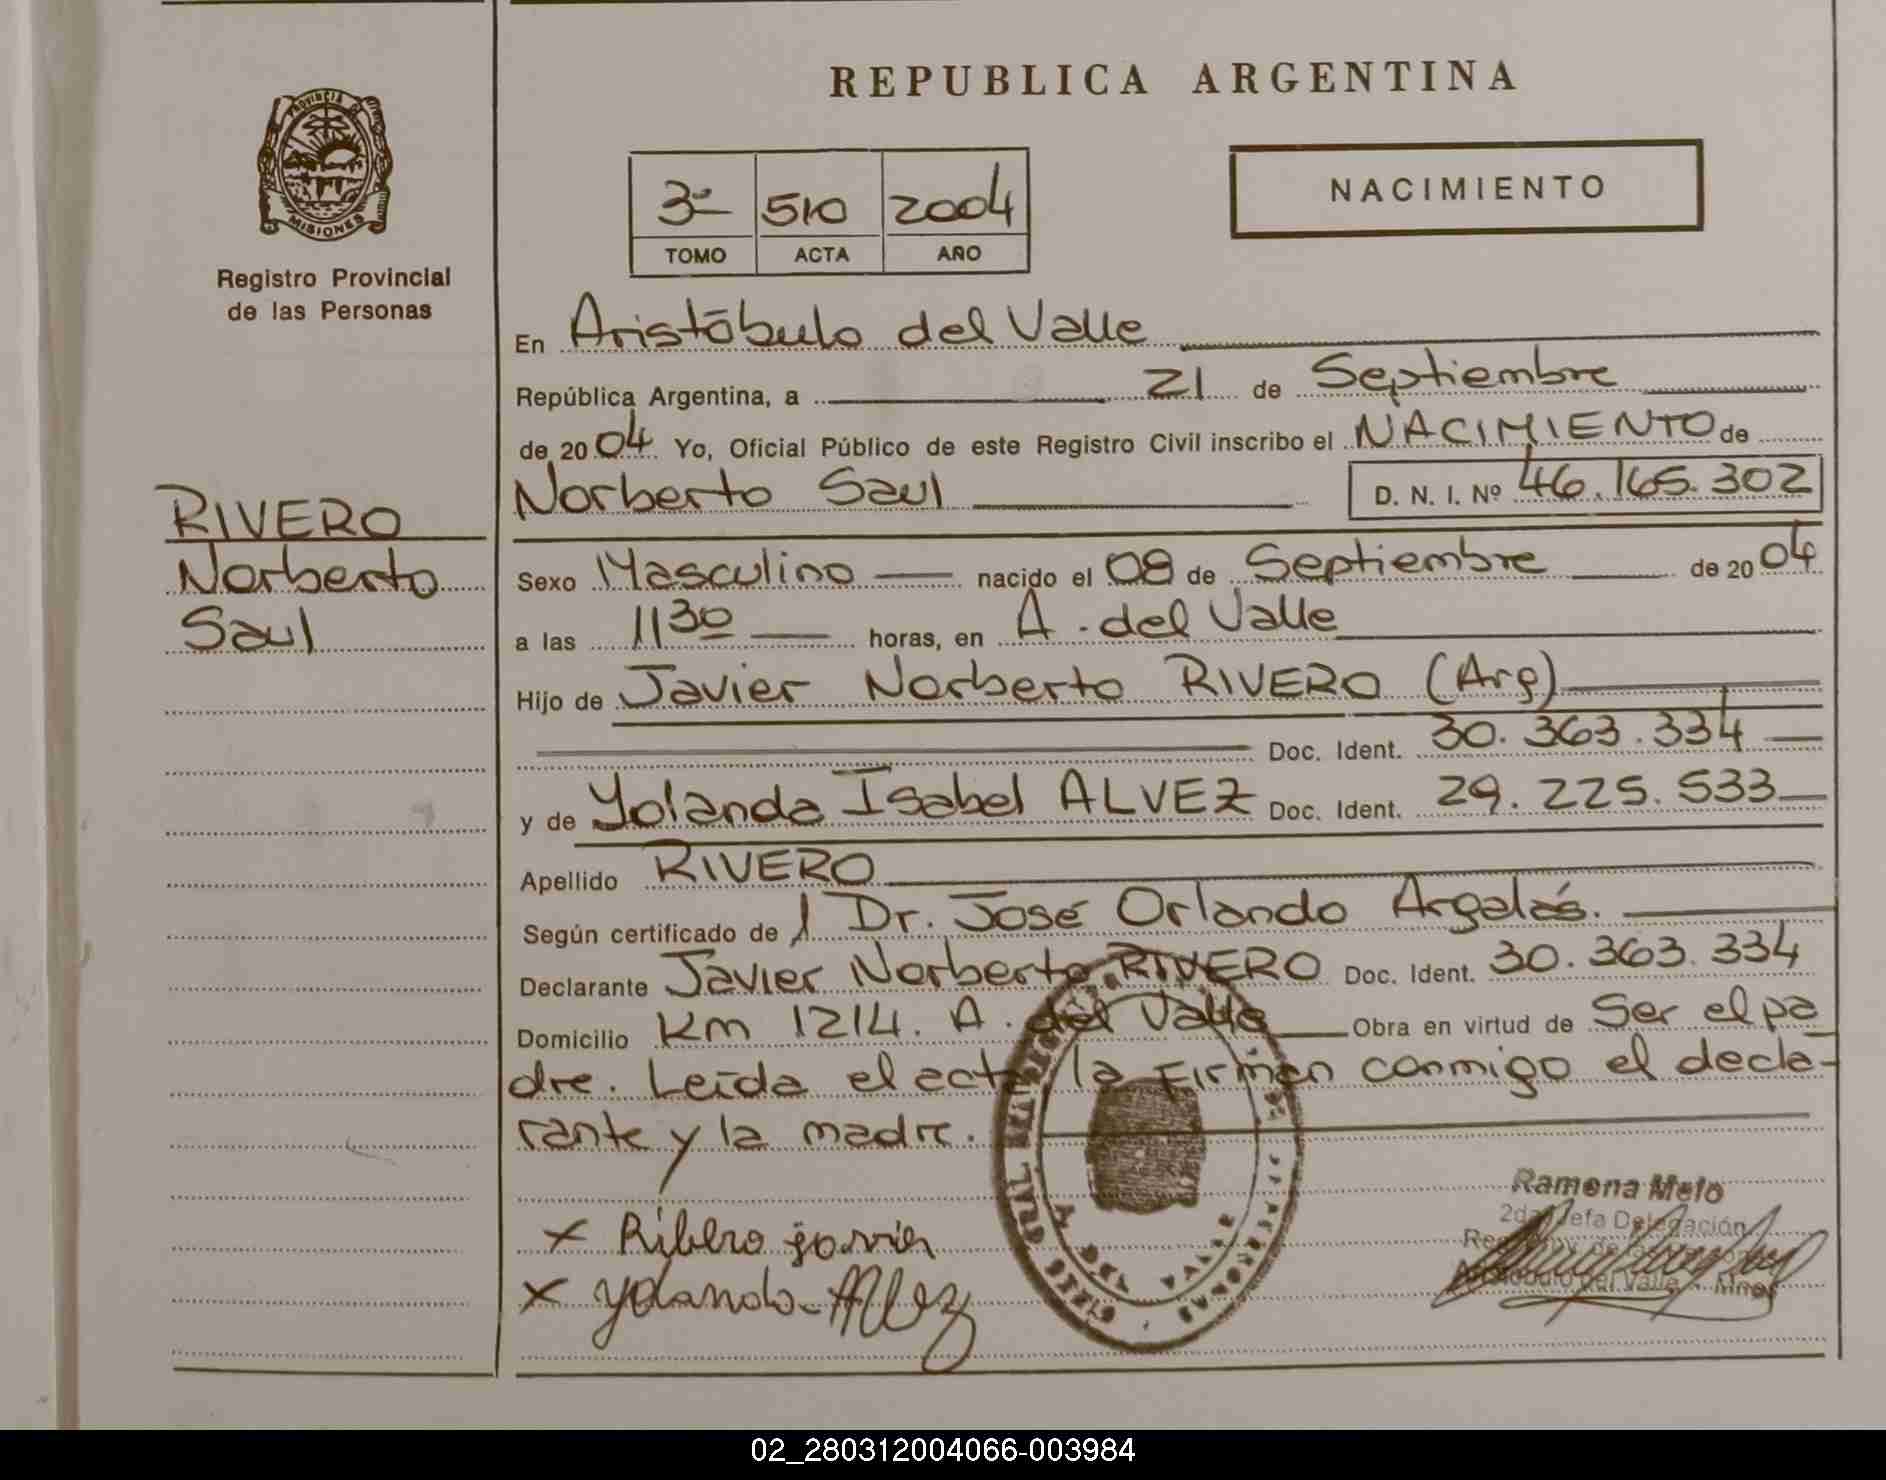 REPUBLICA ARGENTINA
PROVINCIA DE
MISIONES
Registro Provincial
de las Personas
3º 510 2004
TOMO ACTA AÑO
NACIMIENTO
En Aristóbulo del Valle
República Argentina, a 21 de Septiembre
de 2004 Yo, Oficial Público de este Registro Civil inscribo el NACIMIENTO de
Norberto Saul D. N. I. Nº 46.165.302
RIVERO
Norberto
Saul
Sexo Masculino nacido el 08 de Septiembre de 2004
a las 11 30 horas, en A. del Valle
Hijo de Javier Norberto RIVERO (Arg)
Doc. Ident. 30.363.334
y de Yolanda Isabel ALVEZ Doc. Ident. 29.225.533
Apellido RIVERO
Según certificado de Dr. José Orlando Argelás.
Declarante Javier Norberto RIVERO Doc. Ident. 30.363.334
Domicilio Km 1214. A. del Valle Obra en virtud de Ser el pa
dre. Leída el acta la firman conmigo el decla-
rante y la madre.
x Ribero javier
x Yolanda Alvez
Ramona Melo
2da. Jefa Delegación
Aristóbulo del Valle - Mnes
02_280312004066-003984